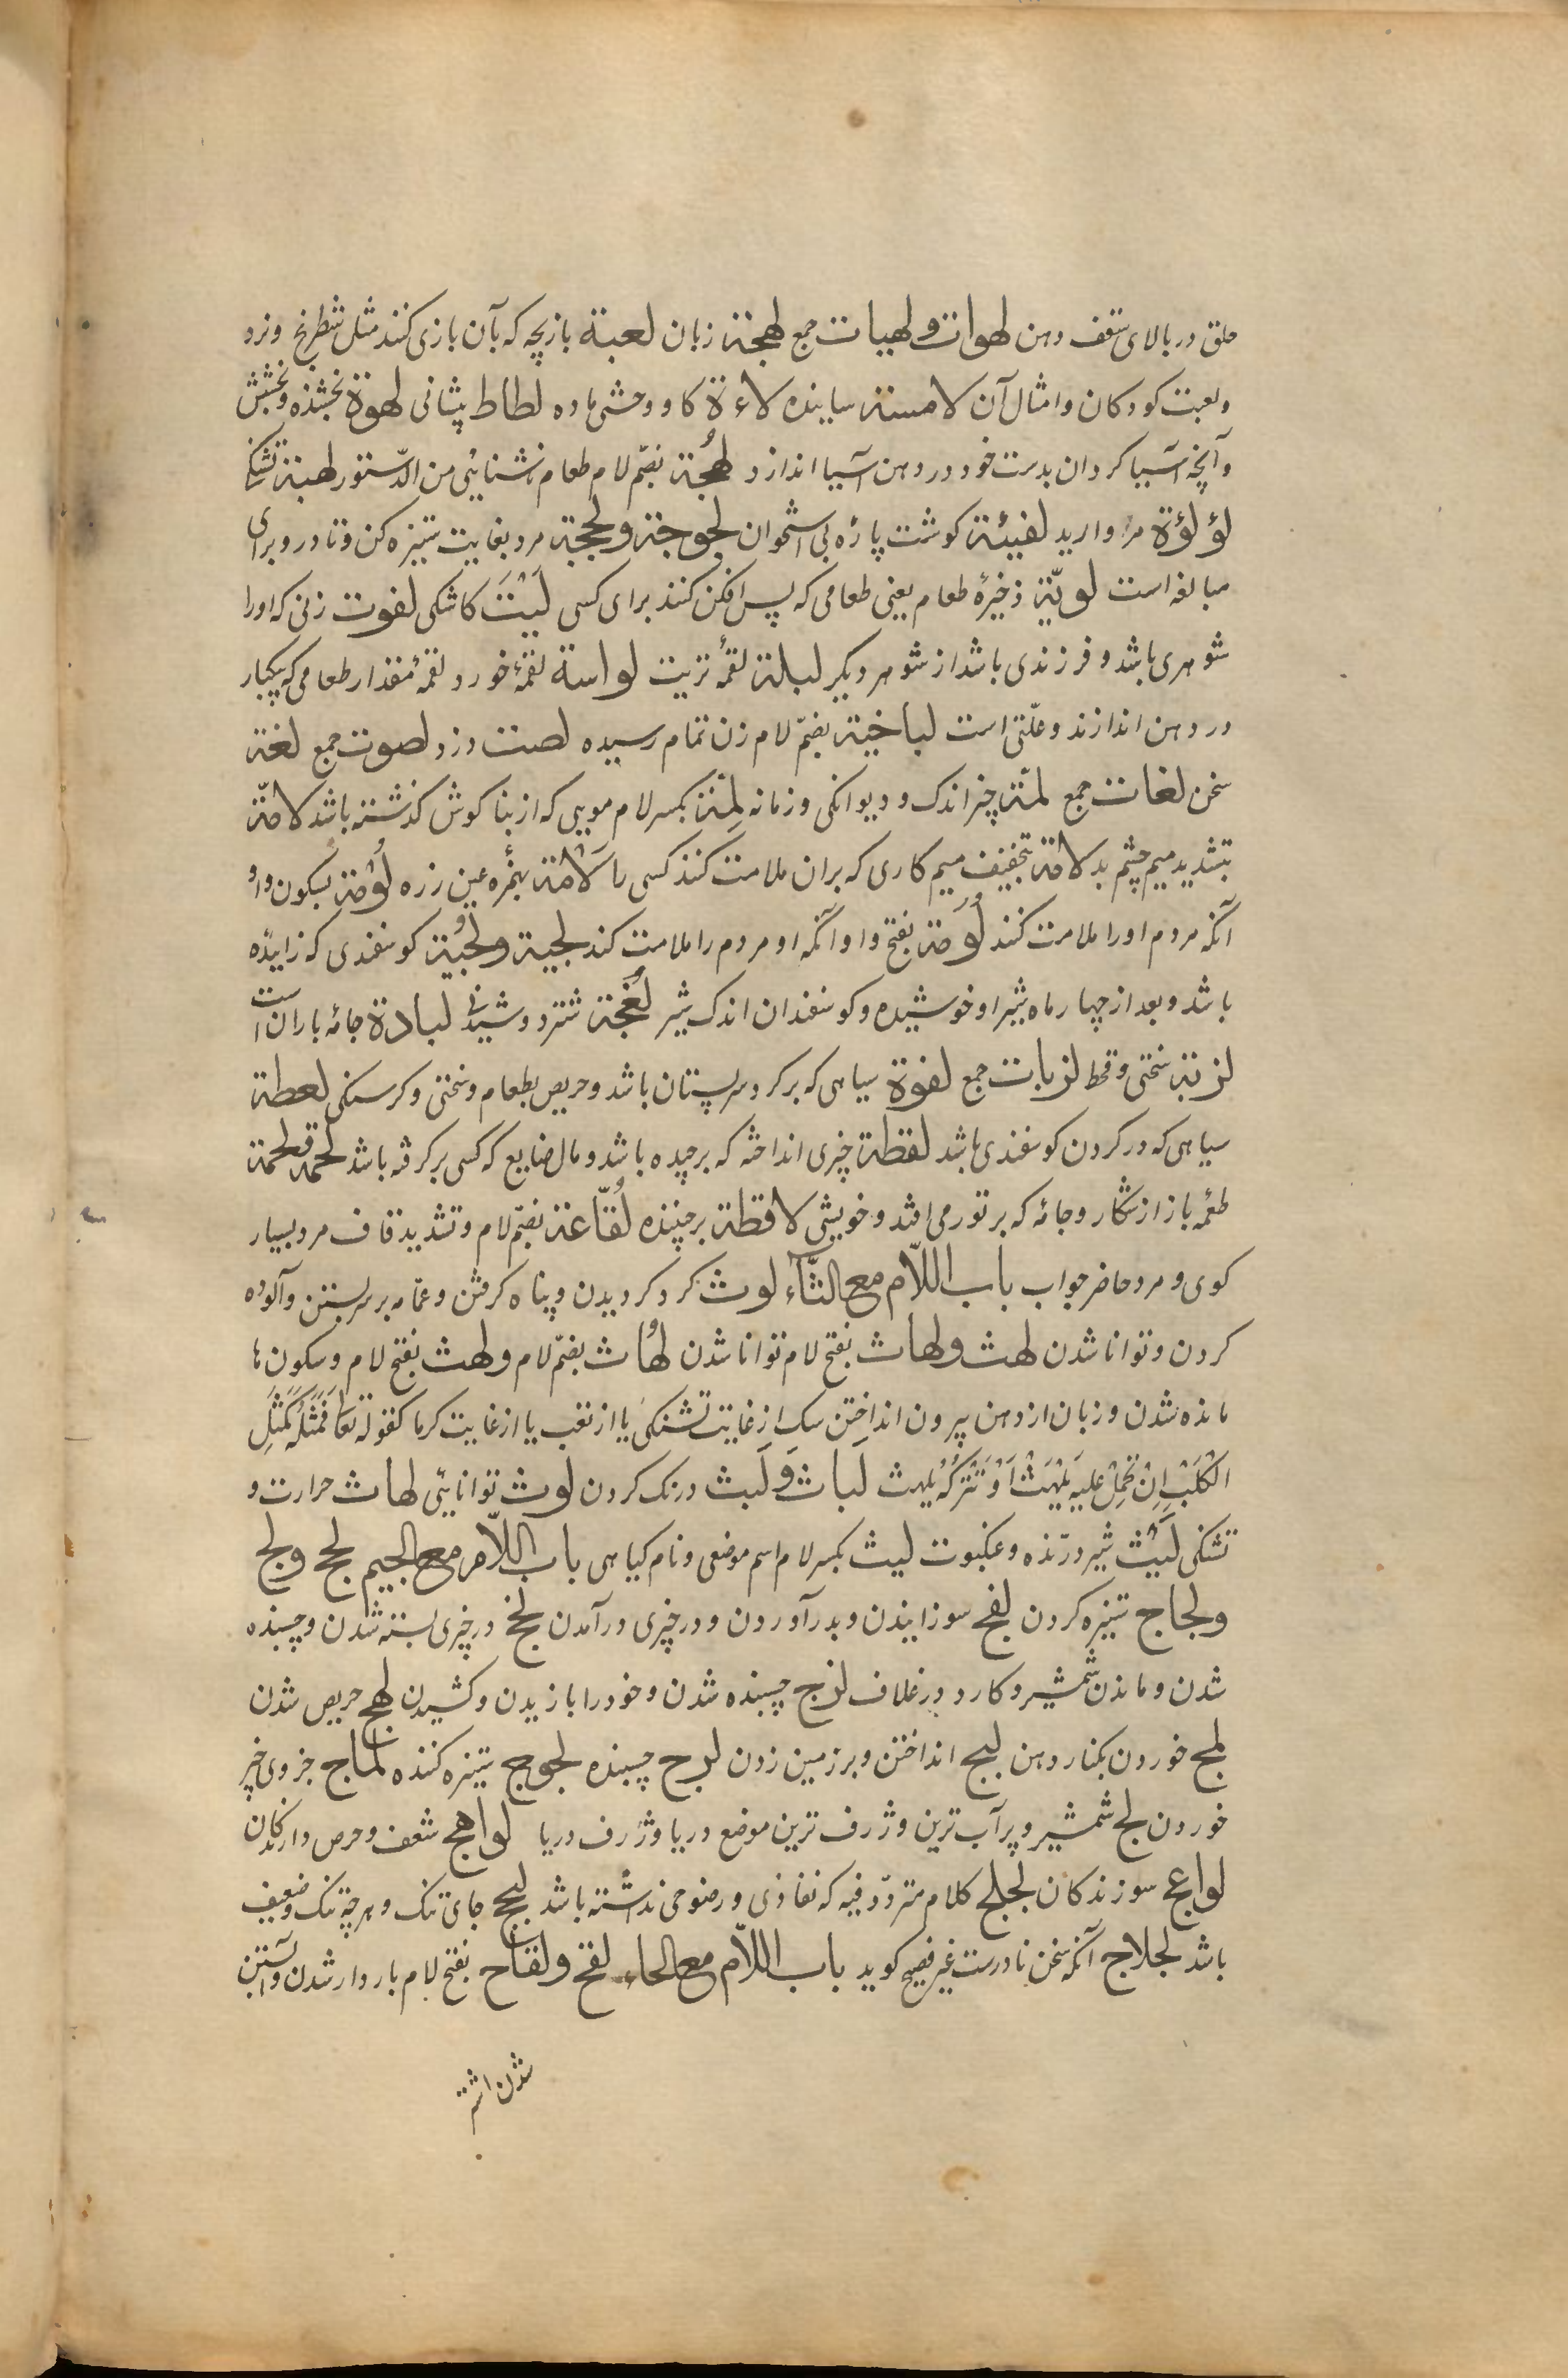 حلق در بالای سقف دهن لهوات ولهیات جمع لهجة زبان لعبة بازیچه که بآن بازی کنند مثل شطرنج ونرد
ولعبت کودکان وامثال آن لامسة ساینده لاءة کاو وحشی ماده لطاط پیشانی لهوة بخشنده وبخشش
وآنچه آسیا کردان بدست خود در دهن آسیا اندازد لهُجة بضمّ لام طعام ناشتایی من الدّستور لهبة تشنکی
لؤلؤة مروارید لفیئة کوشت پارهٔ بی استخوان لجوجة ولججة مرد بغایت ستیزه کن وتا درو برای
مبالغه است لویّة ذخیرهٔ طعام یعنی طعامی که پس افکن کنند برای کسی لَیْتَ کاشکی لفوت زنی که اورا
شوهری باشد وفرزندی باشد از شوهر دیکر لبلة لقمهٔ تریت لواسة لقمهٔ خورد لقمهٔ مقدار طعامی که یکبار
در دهن اندازند وعلّتی است لباخیة بضمّ لام زن تمام رسیده لصت دزد لصوت جمع لغة
سخن لغات جمع لمّة چیز اندک ودیوانکی وزمانه لِمّة بکسر لام مویی که از بناکوش کذشته باشد لامّة
بتشدید میم چشم بد لامة بتخفیف میم کاری که بران ملامت کنند کسی را لَاْمَة بهمزه عین زره لُوْمة بسکون واو
آنکه مردم اورا ملامت کنند لُوَمة بفتح واو آنکه او مردم را ملامت کند لجبة ولجُبة کوسفندی که زاییده
باشد وبعد از چهار ماه شیر او خوشیده وکوسفندان اندک شیر لُقحة شتر دوشیدنی لبادة جامهٔ باران است
لزبة سختی وقحط لزبات جمع لفوة سیاهی که بر کرد سر پستان باشد وحریص بطعام وسختی وکرسنکی لعطة
سیاهی که در کردن کوسفندی باشد لقطة چیزی انداخته که برچیده باشد ومال ضایع که کسی برکرفته باشد لحمة ولحمة
طعمهٔ باز از شکار وجامهٔ که بر تور می افتد وخویشی لاقطة برچیننده لُقّاعة بضمّ لام وتشدید قاف مرد بسیار
کوی ومرد حاضر جواب باب اللّام مع الثّاء لوث کرد کردیدن وپناه کرفتن وعمّامه بر سر بستن وآلوده
کردن وتوانا شدن لهث ولهاث بفتح لام توانا شدن لهُاث بضمّ لام ولهث بفتح لام وسکون ها
مانده شدن وزبان از دهن بیرون انداختن سک از غایت تشنکی یا از تعب یا از غایت کرما کقوله تعا فَمَثَلُهُ کَمَثَلِ
الْکَلْبِ اِنْ تَحْمِلْ عَلَیْهِ یَلْهَثْ اَوْ تَتْرُکْهُ یَلْهَث لَباث وَلَبث درنک کردن لوث توانایی لهاث حرارت و
تشنکی لَیْث شیر درّنده وعنکبوت لیث بکسر لام اسم موضعی ونام کیاهی باب اللّام مع الجیم لجج ولج
ولجاج ستیزه کردن لفج سوزانیدن وبدر آوردن ودر چیزی درآمدن لحج در چیزی بسته شدن وچسبنده
شدن وماندن شمشیر وکارد در غلاف لزج چسبنده شدن وخود را بازیدن وکشیدن لهج حریص شدن
لمج خوردن بکنار دهن لبج انداختن وبر زمین زدن لزج چسبنده لجوج ستیزه کننده لماج جزوی چیز
خوردن لج شمشیر وپرآب ترین وژرف ترین موضع دریا وژرف دریا لواهج شعف وحرص دارندکان
لواعج سوزندکان لجلج کلام متردّد فیه که نفاذی ورضوحی نداشته باشد لحج جای تنک وهرچه تنک وضعیف
باشد لجلاج آنکه سخن نادرست غیر فصیح کوید باب اللّام مع الحاء لقح ولقاح بفتح لام باردار شدن وآبستن
شدن اشتر